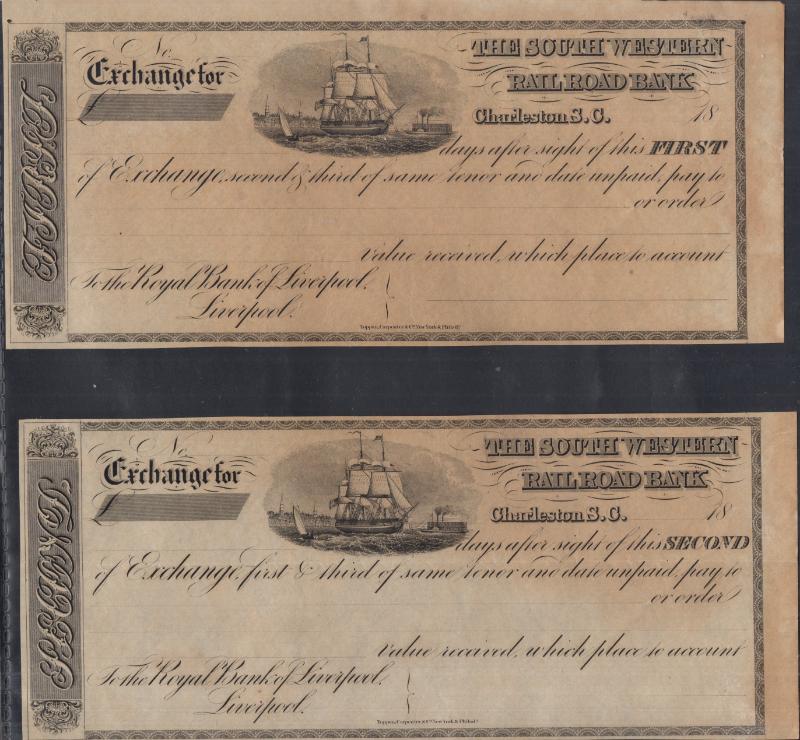 FIRST
No.
Exchange for
£
THE SOUTH WESTERN
RAIL ROAD BANK
Charleston S.C. 18
days after sight of this FIRST
of Exchange, second & third of same tenor and date unpaid, pay to
or order
Value received, which place to account
To the Royal Bank of Liverpool,
Liverpool.
Toppan, Carpenter & Co. New York & Philada.
SECOND
No.
Exchange for
£
THE SOUTH WESTERN
RAIL ROAD BANK
Charleston S.C. 18
days after sight of this SECOND
of Exchange, first & third of same tenor and date unpaid, pay to
or order
Value received, which place to account
To the Royal Bank of Liverpool,
Liverpool.
Toppan, Carpenter & Co. New York & Philada.